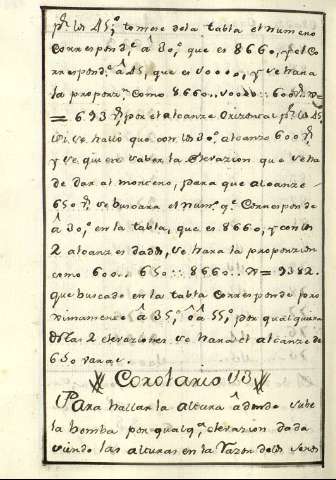 pª. los 45,° tomese dela tabla el numero
correspondᵉ. â 30,° que es 8660, y el Co
rrespondᵉ. â 45, que es 10000, y se hara
la proporzⁿ. como 8660..10000:: 600 vˢ. =
= 693 vˢ, por el alcanze Orizontal pª. los 45,
si se hallò que con los 30,° alcanzò 600 vˢ
y se quiere saber la elevazion que se ha
de dar al mortero, para que alcanze
650 vˢ. se buscara el numº. qᵉ. Corresponde
â 30,° en la tabla, que es 8660, y con los
2 alcanzes dados, se hara la proporzion
como 600.. 650:: 8660.. n = 9382.
que buscado en la tabla corresponde pro
ximamente â 35,° ô â 55,° por qualquiera
de las 2 elevaziones se hara el alcanze de
650 varas.
Corolario 13
Para hallar la altura â donde sube
la bomba por qualqª. elevazion dada
siendo las alturas en la Razon delos senos